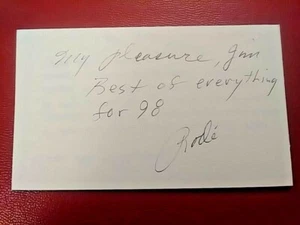 My pleasure, Jim
Best of everything
for 98